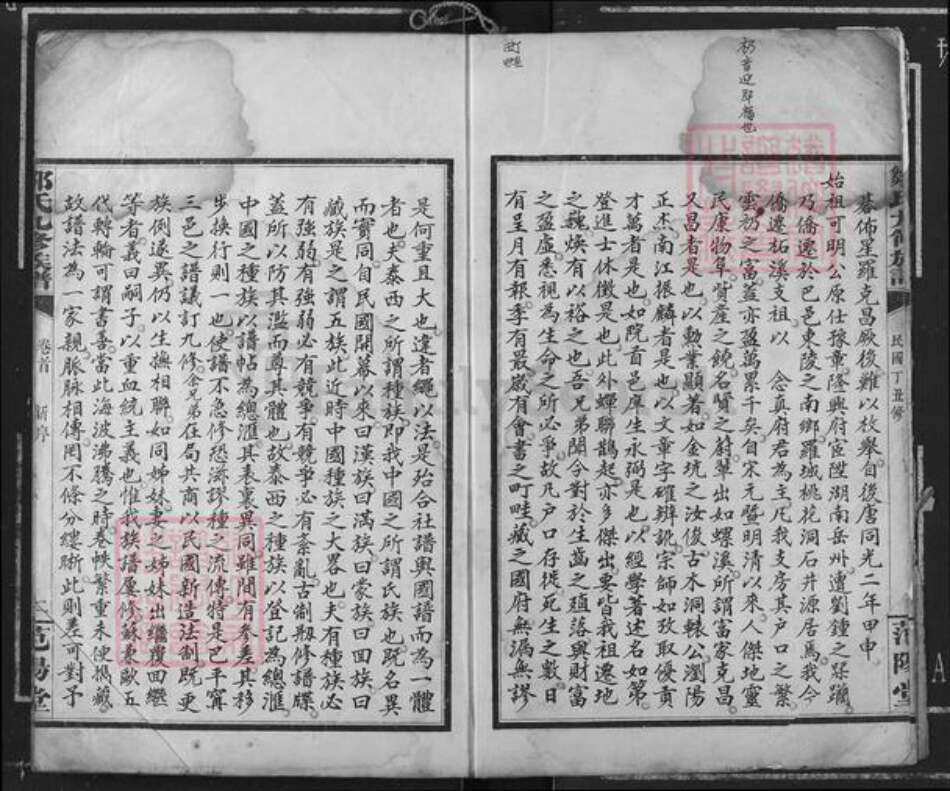 碁佈星羅克昌厥後難以枚舉自後唐同光二年甲申
始祖可明公原仕豫章隆興府宦陞湖南岳州遭劉鍾之琛躪
乃僑遷於巴邑東陵之南鄉羅城桃花洞石井源居焉我今
僑遷柘溪支祖以 念真府君為主凡我支房其戶口之繁
雲礽之富蓋亦盈萬累千矣自宋元暨明清以來人傑地靈
民康物阜貲產之饒名賢之蔚輩出如螺溪所謂富家克昌
又昌者是也以勳業顯著如金坑之汝復古木洞轅公瀏陽
正杰南江振麟者是也以文章字確辨訛宗師如攷取優貢
才萬者是也如院首邑庠生永弼是也以經學著述名如第
登進士休徵是也此外蟬聯鵲起亦多傑出要皆我祖遷地
之魏煥有以裕之也吾兄弟聞今對於生齒之殖落與財富
之盈虛悉視為生命之所必爭故凡戶口存徙死生之數日
有呈月有報季有最歲有會書之町畦藏之國府無漏無謬
是何重且大也達者繩以法是殆合社譜與國譜而為一體
者也夫泰西之所謂種族即我中國之所謂氏族也既名異
而實同自民國開幕以來曰漢族曰滿族曰蒙族曰回族曰
藏族是之謂五族此近時中國種族之大畧也夫有種族必
有強弱有強弱必有競爭有競爭必有紊亂古制剏修譜牒
蓋所以防其濫而尊其體也故泰西之種族以登記為總滙
中國之種族以譜帖為總滙其表裏異同雖間有參差其移
出換行則一也使譜不急修恐滋謬種之流傳特是巴平甯
三邑之譜議訂九修余兄弟在局共商以民國新造法制既更
族例遂異仍以生撫相聯如同姊妹妻之姊妹出繼覆回繼
等者義曰嗣子以重血統主義也惟我族譜屢修蘇東歐五
代轉輪可謂書善當此海波沸騰之時卷帙繁重未便擕藏
故譜法為一家親脈脈相傳罔不條分縷晣此則差可對予
鄒氏九修族譜
民國丁丑修
范陽堂
卷首
新序
范陽堂
町畦